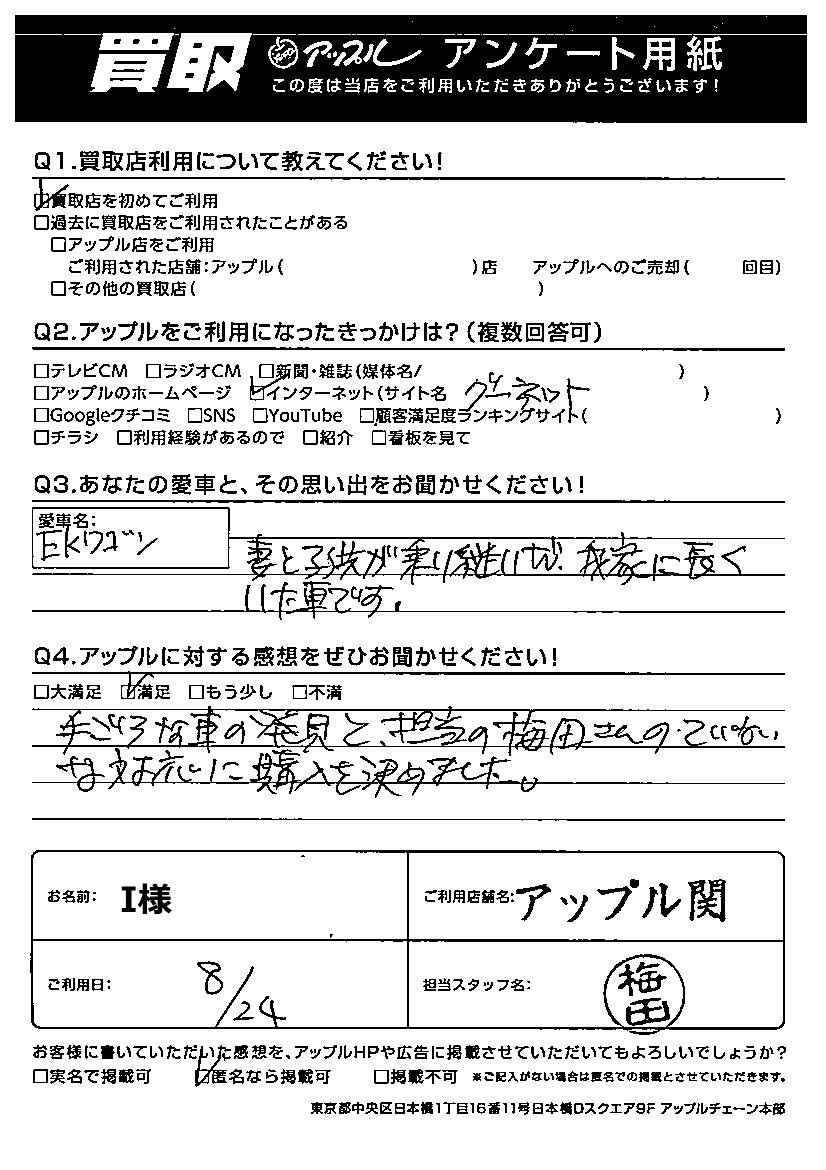 買取 アップル アンケート用紙
この度は当店をご利用いただきありがとうございます!
Q1.買取店利用について教えてください!
☑買取店を初めてご利用
□過去に買取店をご利用されたことがある
□アップル店をご利用
ご利用された店舗:アップル( )店 アップルへのご売却( 回目)
□その他の買取店( )
Q2.アップルをご利用になったきっかけは?(複数回答可)
□テレビCM □ラジオCM □新聞・雑誌(媒体名/ )
□アップルのホームページ ☑インターネット(サイト名 グーネット )
□Googleクチコミ □SNS □YouTube □顧客満足度ランキングサイト( )
□チラシ □利用経験があるので □紹介 □看板を見て
Q3.あなたの愛車と、その思い出をお聞かせください!
愛車名:
EKワゴン
妻と子供が乗り継いで、我家に長く
いた車です。
Q4.アップルに対する感想をぜひお聞かせください!
□大満足 ☑満足 □もう少し □不満
手ごろな車の発見と、担当の梅田さんのていねい
な対応に購入を決めました。
お名前: I様 ご利用店舗名:アップル関
ご利用日: 8/24 担当スタッフ名: 梅田
お客様に書いていただいた感想を、アップルHPや広告に掲載させていただいてもよろしいでしょうか?
□実名で掲載可 ☑匿名なら掲載可 □掲載不可 ※ご記入がない場合は匿名での掲載とさせていただきます。
東京都中央区日本橋1丁目16番11号日本橋Dスクエア9F アップルチェーン本部